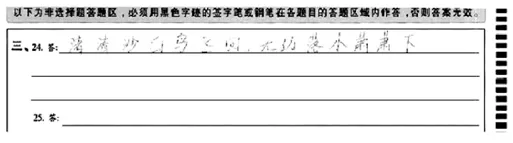 以下为非选择题答题区，必须用黑色字迹的签字笔或钢笔在各题目的答题区域内作答，否则答案无效。
三、24. 答：渚清沙白鸟飞回，无边落木萧萧下
25. 答：